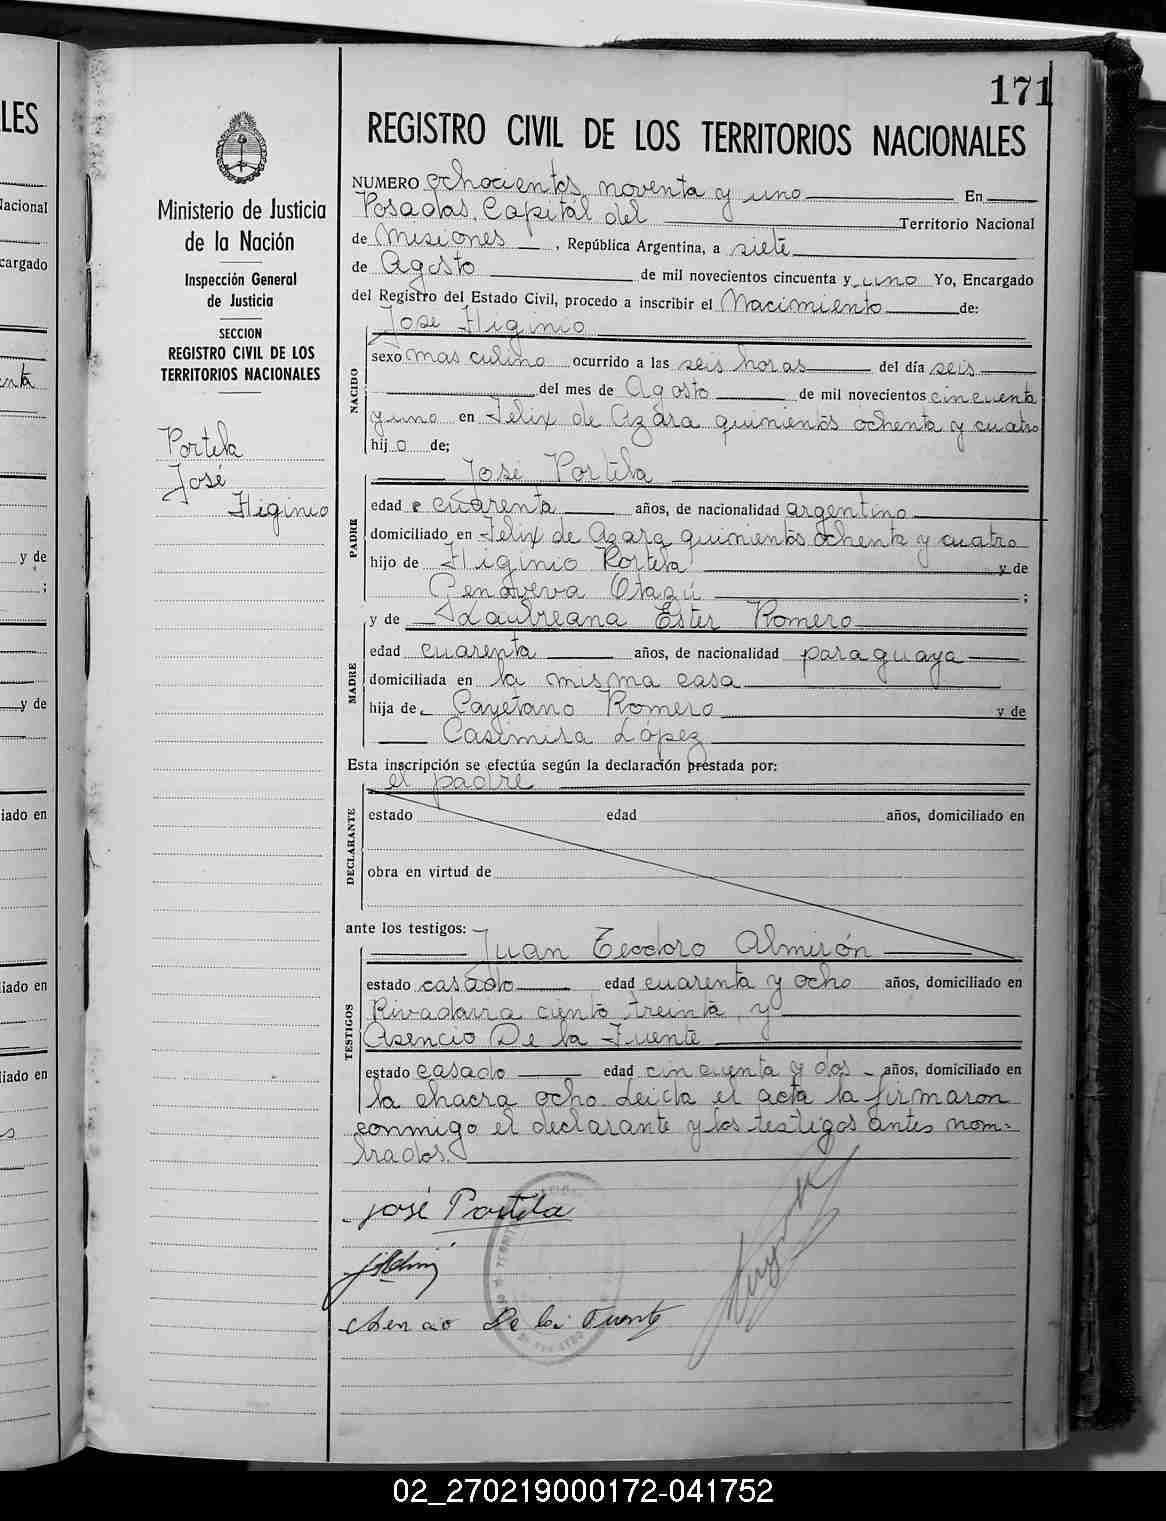 171
REGISTRO CIVIL DE LOS TERRITORIOS NACIONALES
Ministerio de Justicia
de la Nación
Inspección General
de Justicia
SECCION
REGISTRO CIVIL DE LOS
TERRITORIOS NACIONALES
Portela
José
Higinio
NUMERO ochocientos noventa y uno En
Posadas, Capital del Territorio Nacional
de Misiones , República Argentina, a siete
de Agosto de mil novecientos cincuenta y uno Yo, Encargado
del Registro del Estado Civil, procedo a inscribir el Nacimiento de:
José Higinio
NACIDO
sexo masculino ocurrido a las seis horas del día seis
del mes de Agosto de mil novecientos cincuenta
y uno en Felix de Azara quinientos ochenta y cuatro
hijo de;
José Portela
PADRE
edad cuarenta años, de nacionalidad argentino
domiciliado en Felix de Azara quinientos ochenta y cuatro
hijo de Higinio Portela y de
Genoveva Otazú ;
y de Laureana Ester Romero
MADRE
edad cuarenta años, de nacionalidad paraguaya
domiciliada en la misma casa
hija de Cayetano Romero y de
Casimira López
Esta inscripción se efectúa según la declaración prestada por:
el padre
DECLARANTE
estado edad años, domiciliado en
obra en virtud de
ante los testigos:
Juan Teodoro Almirón
TESTIGOS
estado casado edad cuarenta y ocho años, domiciliado en
Rivadavia ciento treinta, y
Asencio De la Fuente
estado casado edad cincuenta y dos años, domiciliado en
la chacra ocho. Leida el acta la firmaron
conmigo el declarante y los testigos antes nom-
brados.
José Portela
Asencio De la Fuente
02_270219000172-041752
LES
Nacional
cargado
y de
;
y de
iado en
iado en
iado en